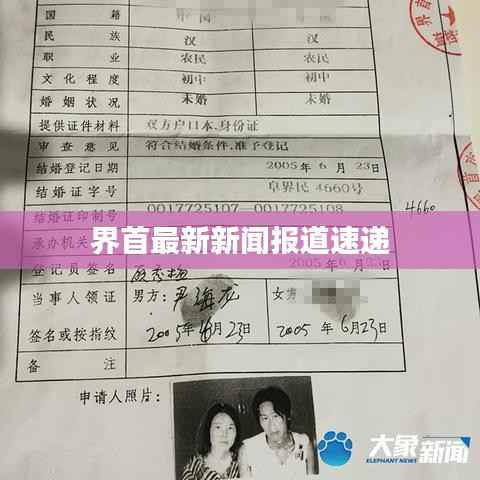 国 籍 中 国
民 族 汉 汉
职 业 农民 农民
文 化 程 度 初中 初中
婚 姻 状 况 未婚 未婚
提供证件材料 双方户口本、身份证
审 查 意 见 符合结婚条件,准予登记
结婚登记日期 2005 年 6 月 23 日
结 婚 证 字 号 阜界民 4660号
4660
结婚证印制号 0017725107——0017725108
承办机关
界首最新新闻报道速递
登记员签名
当 事 人 领 证 男方: 尹海龙 女方
签名或按指纹 2005年6月23日 2005 年 6月23日
备 注
申请人照片:
大象新闻
ELEPHANT NEWS